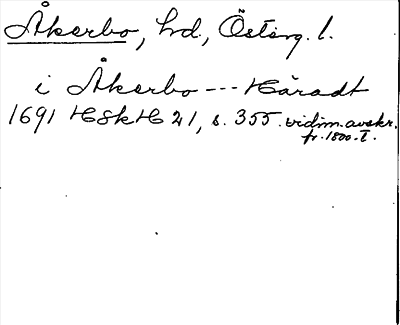 Åkerbo, hd, Österg. l.
i Åkerbo --- Häradt
1691 HSkH 21, s. 355. vidim. avskr.
fr. 1800-t.